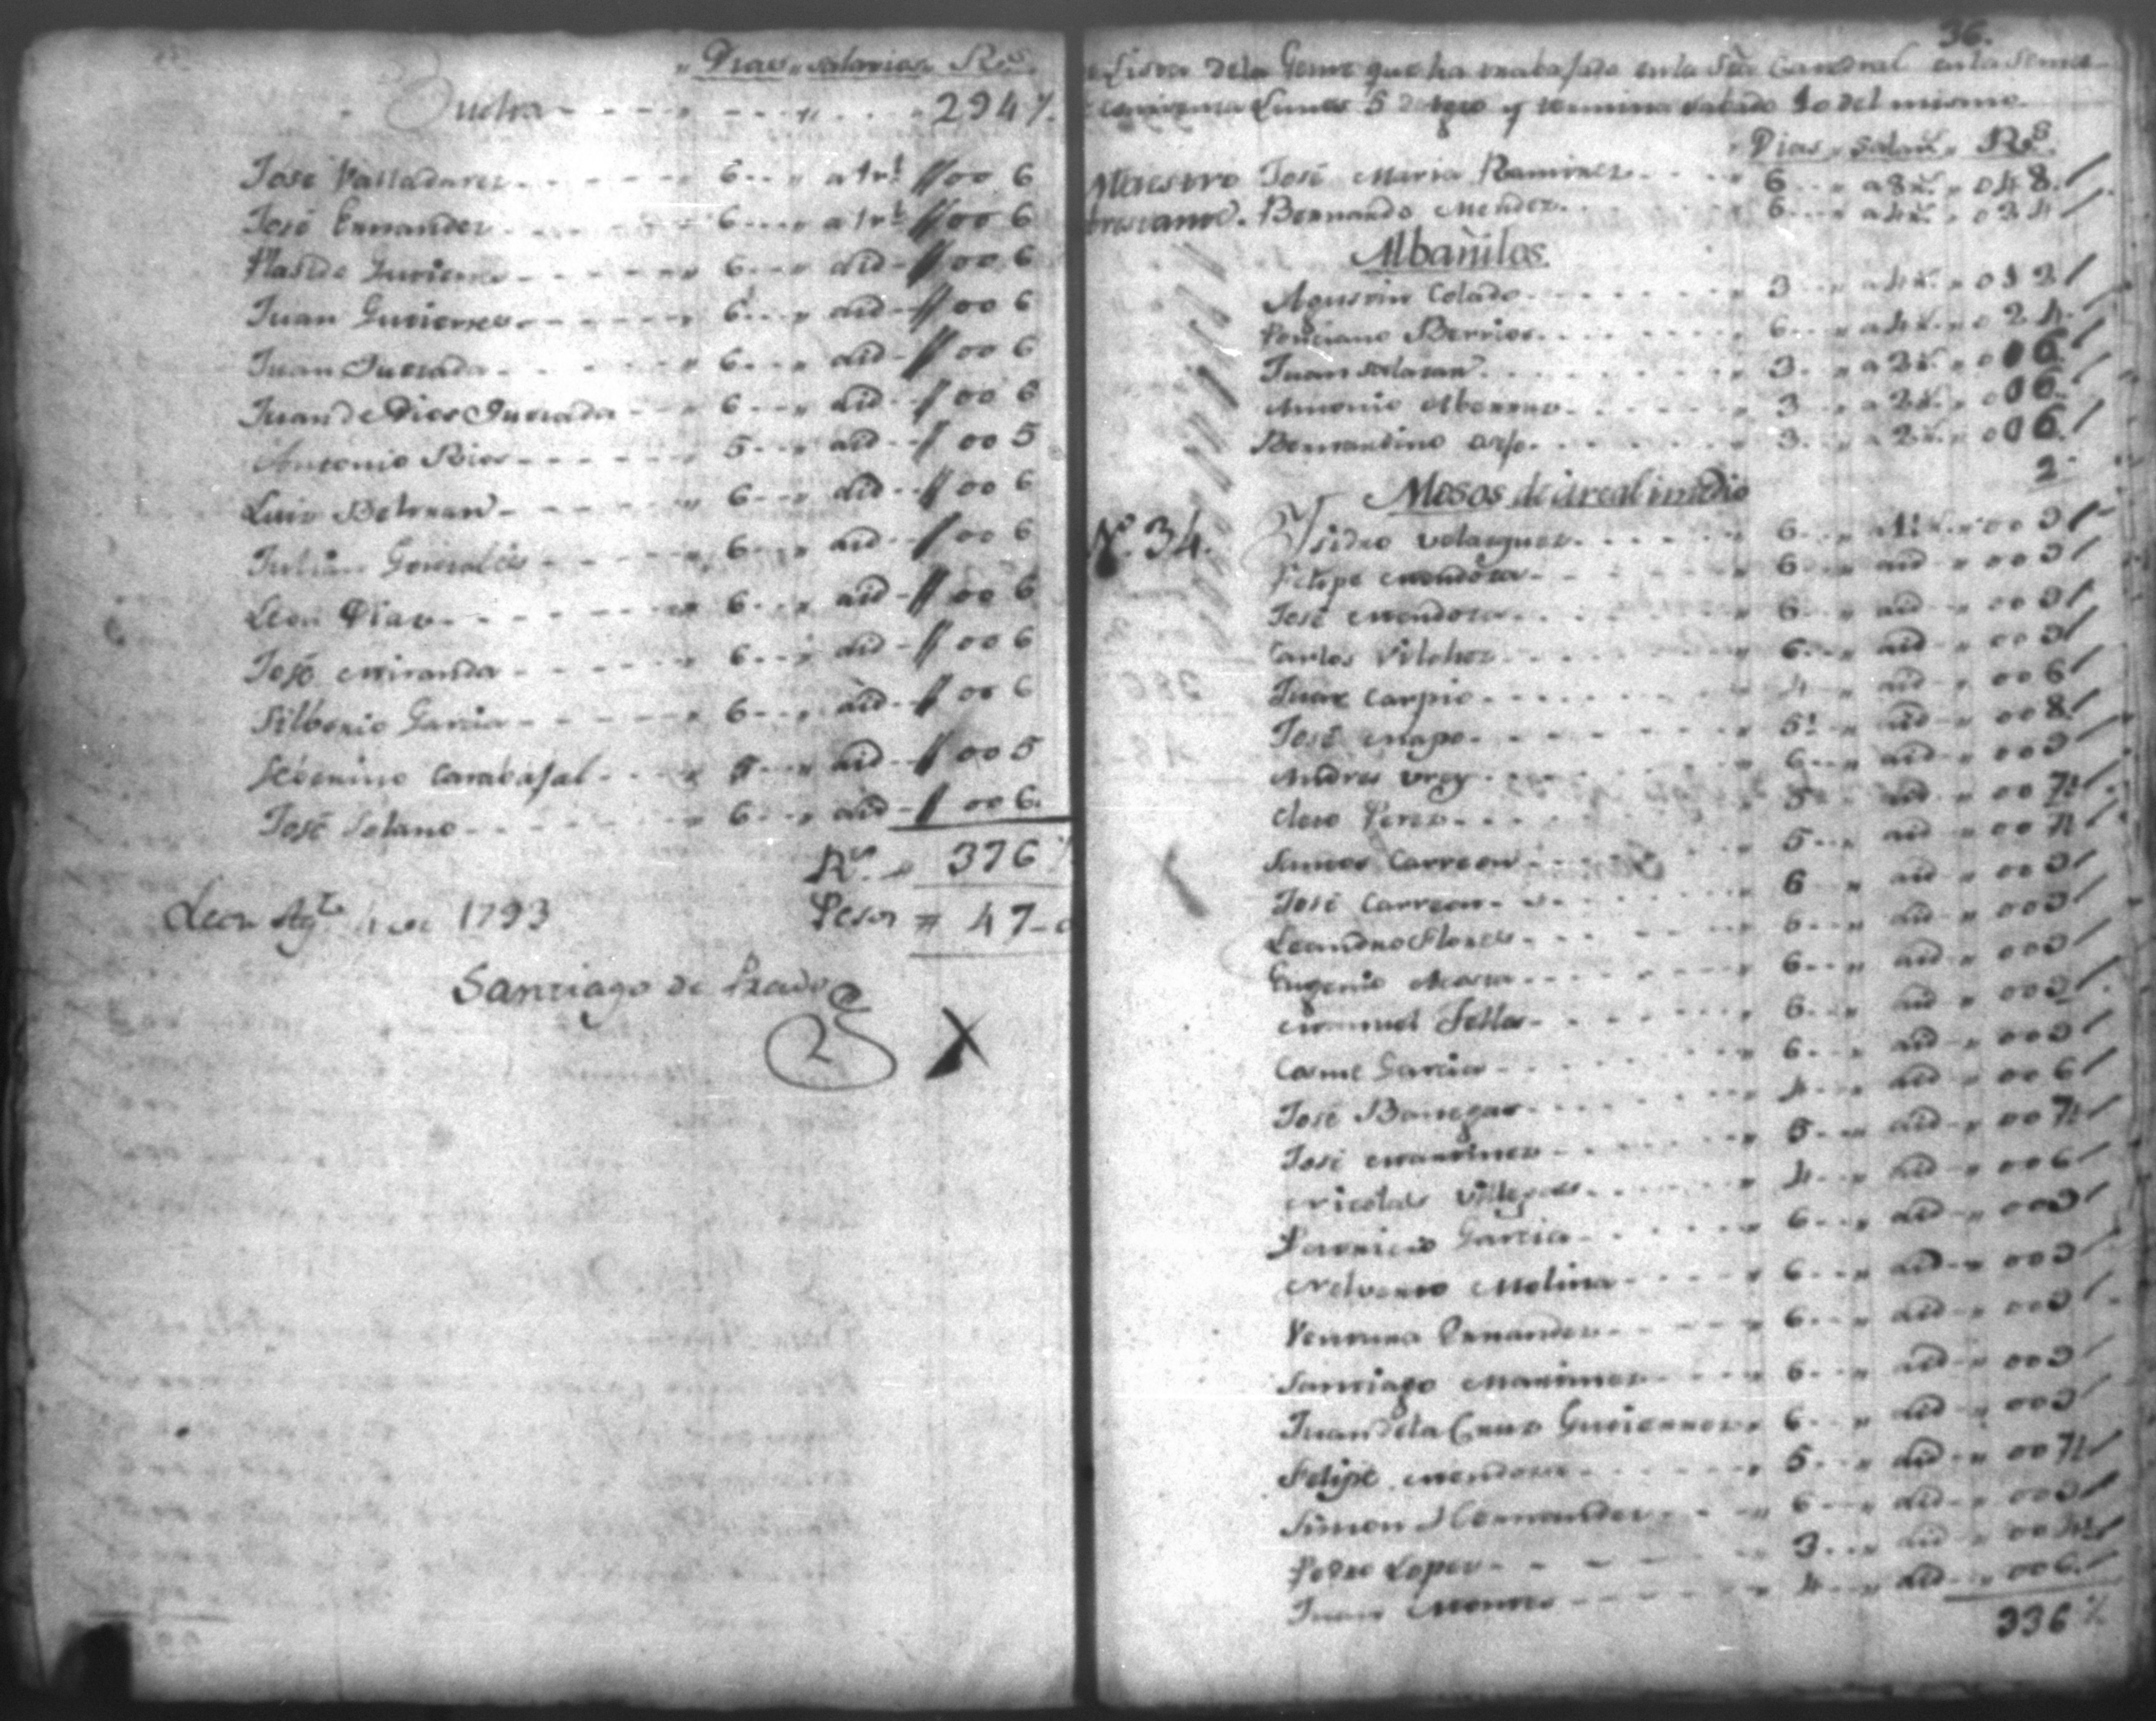 Dias, salarios Rs.
Buelta 294 ½
José Valladares 6 a 1 rl 006
José Ernandez 6 a 1 rl 006
Plasido Gutierres 6 aid 006
Juan Gutierres 6 aid 006
Juan Quesada 6 aid 006
Juan de Dios Quesada 6 aid 006
Antonio Rios 5 aid 005
Luis Beltran 6 aid 006
Julian Gonzales 6 aid 006
Leon Dias 6 aid 006
José Miranda 6 aid 006
Silberio Garcia 6 aid 006
Seberino Carabajal 5 aid 005
José Solano 6 aid 006.
Rs. 376
Leon Agto. 1793 Pesos 47-0
Santiago de Prado
36.
Lista dela Gente que ha trabajado en la Sta Catedral en la Sema-
comiensa Lunes 5 y termina sabado 10 del mismo.
Dias, salars, Rs
Maestro José Maria Ramires 6 a 8 rs. 048.
Bernardo Mendez 6 a 4 rs. 024
Albañiles.
Agustin Colado 3 a 4 rs. 012
Ponciano Berrios 6 a 4 rs. 024.
Juan Salazar 3 a 2 rs. 006
Antonio 3 a 2 rs. 006.
Bernardino 3 a 2 rs. 006.
2
Mosos de á real i medio
No. 34. Isidro Velasquez 6 009
Felipe Mendoza 6 aid 009
José Mendoza 6 aid 009
Carlos Vilchez 6 aid 009
Juan Carpio 4 aid 006
José 5½ aid 008
Andres 6 aid 009
Perez 5 aid 007½
Santos Carreon 5 aid 007½
José Carreon 6 aid 009
Leandro Flores 6 aid 009
Eugenio Acosta 6 aid 009
Manuel Telles 6 aid 009
Cosme Garcia 6 aid 009
José Banegas 4 aid 006
José Martinez 5 aid 007½
Nicolas Villegas 4 aid 006
Garcia 6 aid 009
Molina 6 aid 009
Ventura Ernandez 6 aid 009
Santiago Martinez 6 aid 009
Juan dela Crus Gutierres 6 aid 009
Felipe Mendoza 5 aid 007½
Simon Hernandez 6 aid 009
Pedro Lopez 3 aid 004½
Juan 4 aid 006.
336 ½